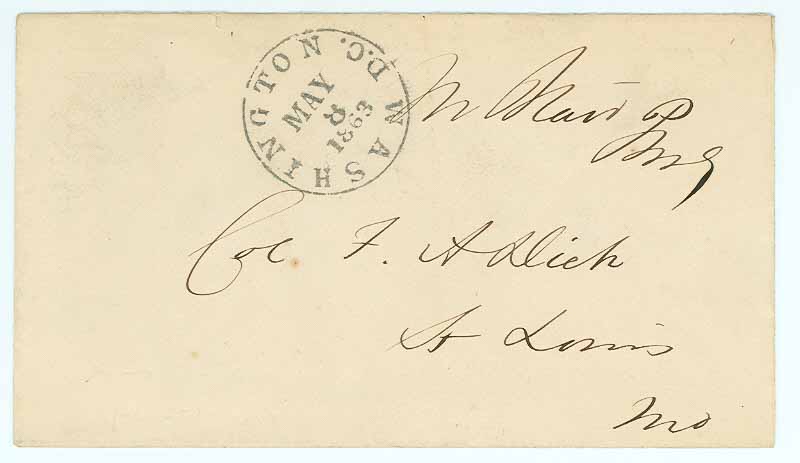 WASHINGTON D.C.
MAY
8
1863
M Blair P
Col F. A Dick
St Louis
Mo